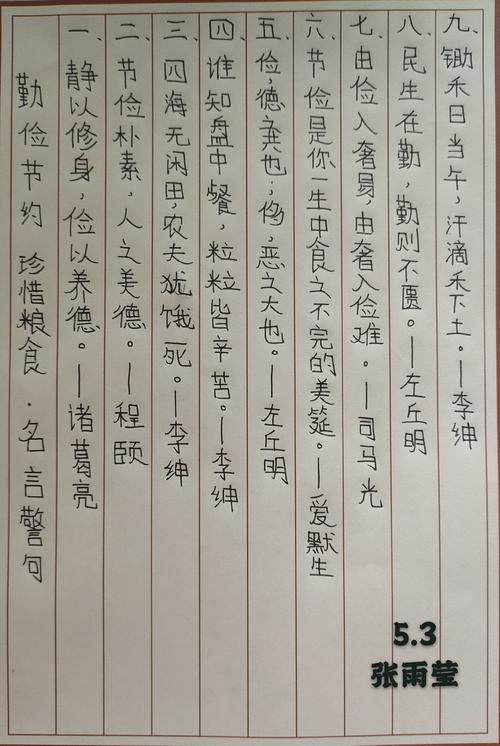 勤俭节约 珍惜粮食·名言警句
一、静以修身,俭以养德。—诸葛亮
二、节俭朴素,人之美德。—程颐
三、四海无闲田,农夫犹饿死。—李绅
四、谁知盘中餐,粒粒皆辛苦。—李绅
五、俭,德之共也;侈,恶之大也。—左丘明
六、节俭是你一生中食之不完的美筵。—爱默生
七、由俭入奢易,由奢入俭难。—司马光
八、民生在勤,勤则不匮。—左丘明
九、锄禾日当午,汗滴禾下土。—李绅
5.3
张雨莹